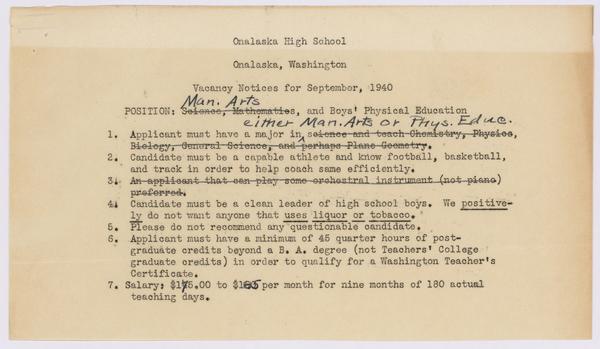 Onalaska High School
Onalaska, Washington
Vacancy Notices for September, 1940
Man. Arts
POSITION: Science, Mathematics, and Boys' Physical Education
either Man. Arts or Phys. Educ.
1. Applicant must have a major in science and teach Chemistry, Physics,
Biology, General Science, and perhaps Plane Geometry.
2. Candidate must be a capable athlete and know football, basketball,
and track in order to help coach same efficiently.
3. An applicant that can play some orchestral instrument (not piano)
preferred.
4. Candidate must be a clean leader of high school boys. We positive-
ly do not want anyone that uses liquor or tobacco.
5. Please do not recommend any questionable candidate.
6. Applicant must have a minimum of 45 quarter hours of post-
graduate credits beyond a B. A. degree (not Teachers' College
graduate credits) in order to qualify for a Washington Teacher's
Certificate.
7. Salary: $145.00 to $165 per month for nine months of 180 actual
teaching days.